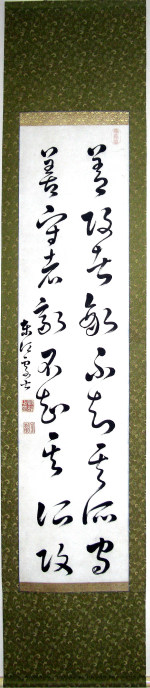 善攻者敵不知其所守
善守者敵不知其所攻
東江書